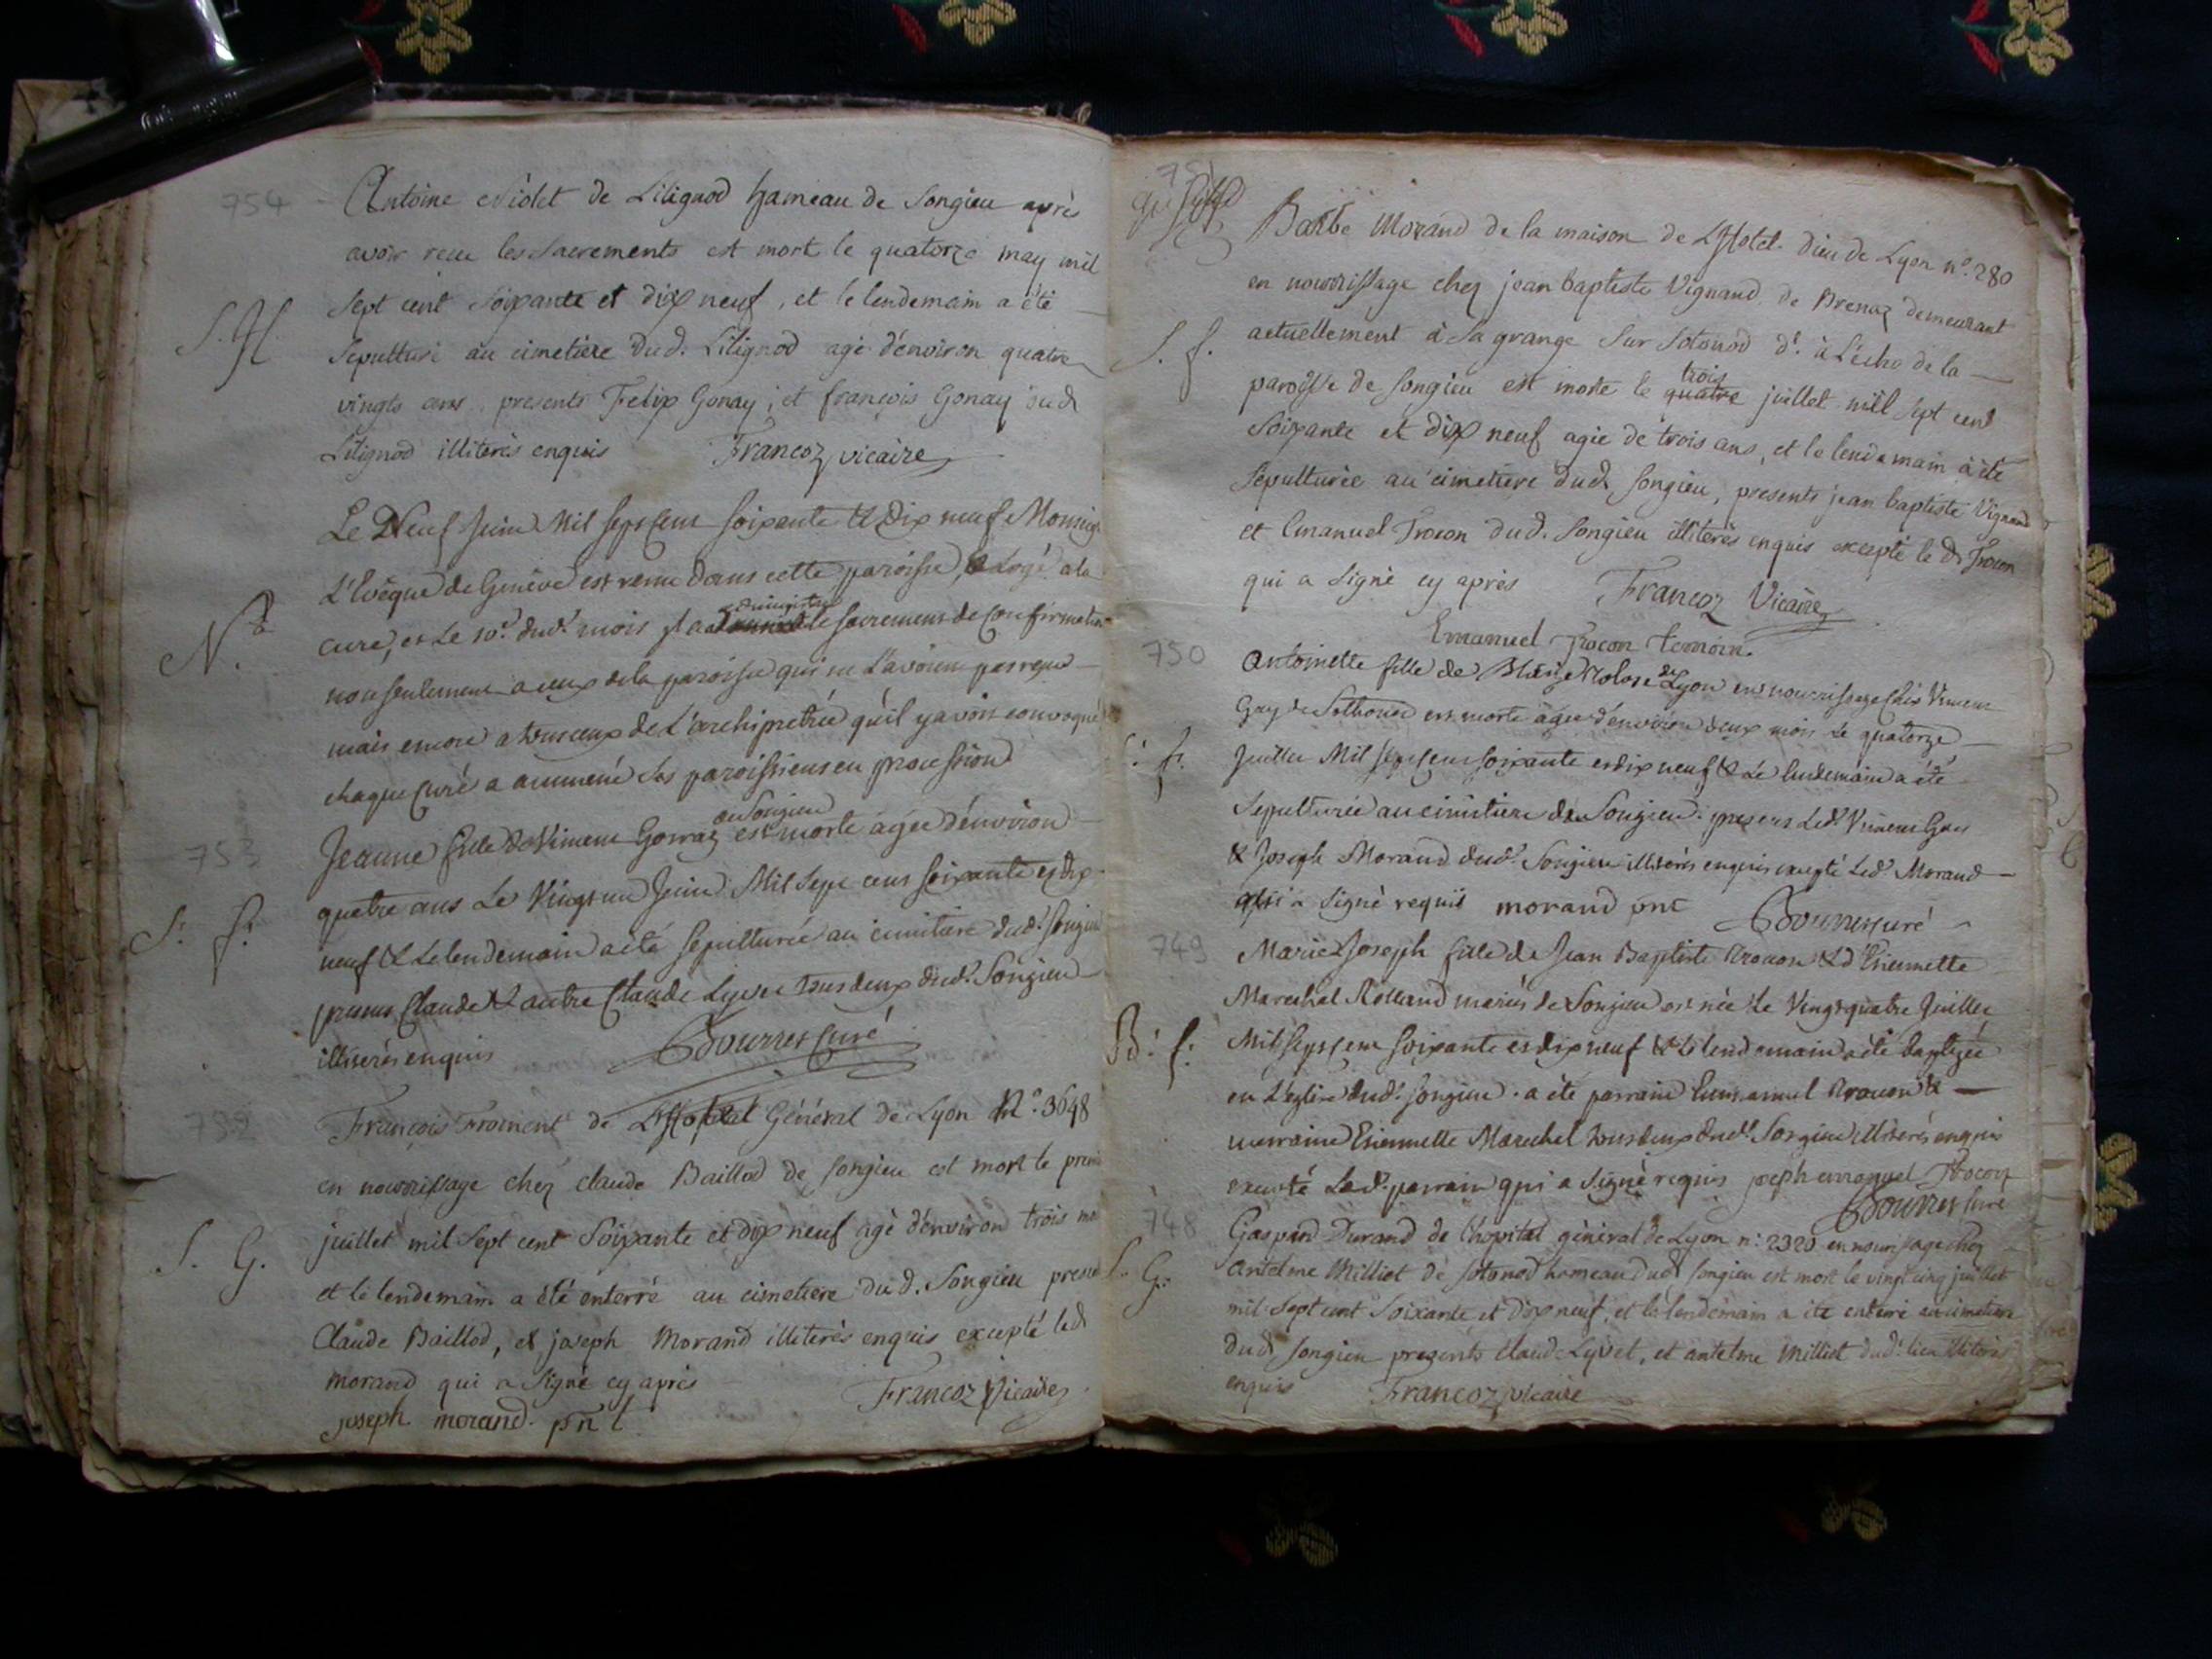 754
Antoine Violet de Lilignod hameau de Songieu après
avoir reçu les Sacrements est mort le quatorze may mil
Sept cent Soixante et dix neuf, et le lendemain a été
S. H
Sepulturé au cimetiére dud. Lilignod agé d'énviron quatre
vingts ans. presents Felix Gonay, et françois Gonay dud
Lilignod illiterés enquis Francoz vicaire
Le Neuf Juin Mil Sept Cent Soixante & dix neuf Monseig
L'Evêque de Genève est venu dans cette paroisse, & Logé a la
Na
cure, et Le 10e dud. mois il a administré le sacrement de Confirmation
non seulement a ceux de la paroisse qui ne L'avoient pas reçu
mais encore a tous ceux de L'archipretrée qu'il y avoit convoqué
chaque Curé a ammené ses paroissiens en procession
753
Jeanne fille de Vincent Gorraz de Songieu est morte agée d'énviron
quatre ans Le Vingt un Juin Mil Sept cent soixante et dix
S. f.
neuf & Le lendemain a été sepulturée au cimitiére dud. Songieu
presens Claude & autre Claude Lyvet tous deux dud. Songieu
illiterés enquis Curé
752
François Froment de L'Hopital Général de Lyon N.o 3648
en nourrissage chez claude Baillod de Songieu est mort le
juillet mil Sept cent Soixante et dix neuf agé d'énviron trois
S. G.
et le lendemain a été enterré au cimetiere dud. Songieu
Claude Baillod, et joseph Morand illiterés enquis excepté led
morand qui a Signé cy aprés Francoz Vicaire
joseph morand pnt
751
Barbe Morand de la maison de L'Hotel dieu de Lyon n.o 280
en nourrissage chez jean baptiste Vignand de Brenaz demeurant
S. f.
actuellement à Sa grange Sur Sotonod d. à L'écho de la
paroisse de Songieu est morte le quatre trois juillet mil Sept cent
Soixante et dix neuf agée de trois ans, et le lendemain a été
Sepulturée au cimetiére dud Songieu, presents jean baptiste Vignand
et Emanuel Trocon dud. Songieu illiterés enquis excepté le d Trocon
qui a Signé cy aprés Francoz Vicaire
Emanuel Trocon temoin.
750
Antoinette fille de de Lyon en nourrissage chés Vincent
Guy de Sothonod est morte agée d'énviron deux mois Le quatorze
S. f.
Juillet Mil Sept Cent soixante et dix neuf & Le lendemain a été
Sepulturée au cimitiére de Songieu. presens Led. Vincent Guy
& Joseph Morand dud. Songieu illiterés enquis excepté Led. Morand
qui a Signé requis morand pnt Curé
749
Marie Joseph fille de Jean Baptiste Trocon & d'Etiennette
Marechal Rolland mariés de Songieu est née Le Vingt quatre Juillet
B. f.
Mil Sept Cent soixante et dix neuf & Le lendemain a été baptizée
en L'eglise dud. Songieu. a été parrain Emmanuel Trocon &
marraine Etiennette Marechal tous deux dud. Songieu illiterés enquis
excepté Led. parrain qui a Signé requis joseph emanuel Trocon
Curé
748
Gaspard Durand de l'hopital général de Lyon n.o 2320 en nourissage chez
S. G.
Antelme Milliet de Sotonod hameau dud Songieu est mort le vingt cinq juillet
mil Sept cent Soixante et dix neuf, et le lendemain a été enterré au cimetiere
dud Songieu presents claude Lyvet, et antelme Milliet dud. lieu illiterés
enquis Francoz vicaire